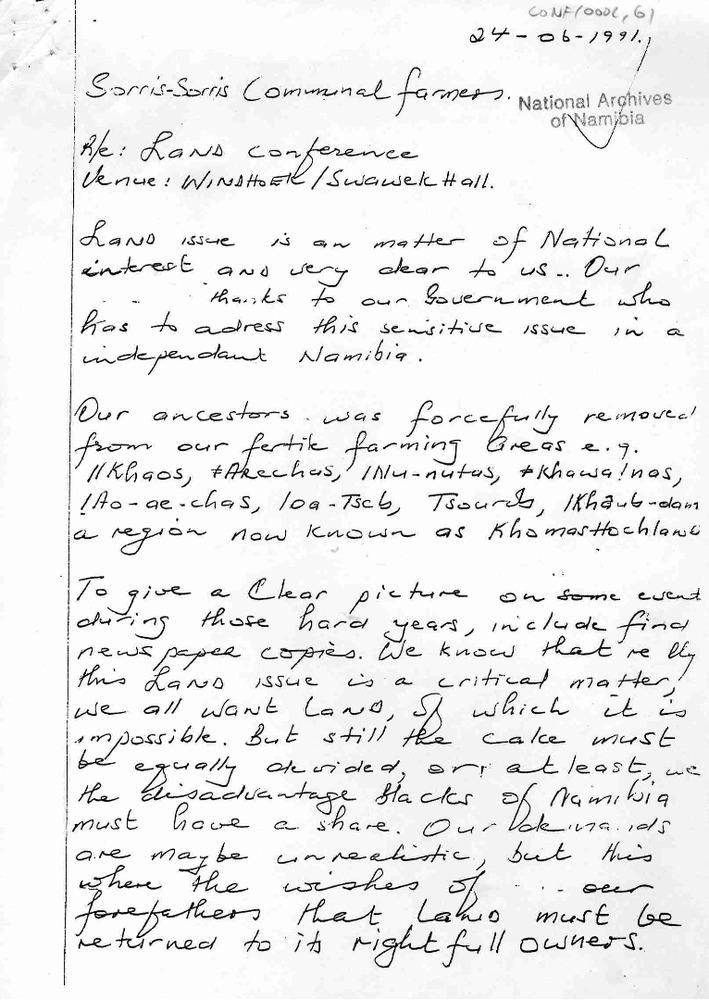 CONF/000L, 6)
24-06-1991.
Sorris-Sorris Communal farmers.
National Archives
of Namibia
R/e: LAND Conference
Venue: WINDHOEK/Swawek Hall.
LAND issue is an matter of National
interest AND very dear to us.. Our
thanks to our Government who
has to adress this sensitive issue in a
independant Namibia.
Our ancestors was forcefully removed
from our fertile farming areas e.g.
//Khaos, ≠Arechas, /Nu-nutas, ≠Khawa!nas,
!Ao-ae-chas, /oa-Tseb, /Khaub-dam
a region now known as KhomasHochland
To give a Clear picture on some event
during those hard years, include find
newspaper copies. We know that
this LAND issue is a critical matter,
we all want LAND, of which it is
impossible. But still the cake must
be equally devided, or at least, we
the disadvantage blacks of Namibia
must have a share. Our demands
are maybe unrealistic, but this
where the wishes of our
forefathers that LAND must be
returned to its rightfull owners.